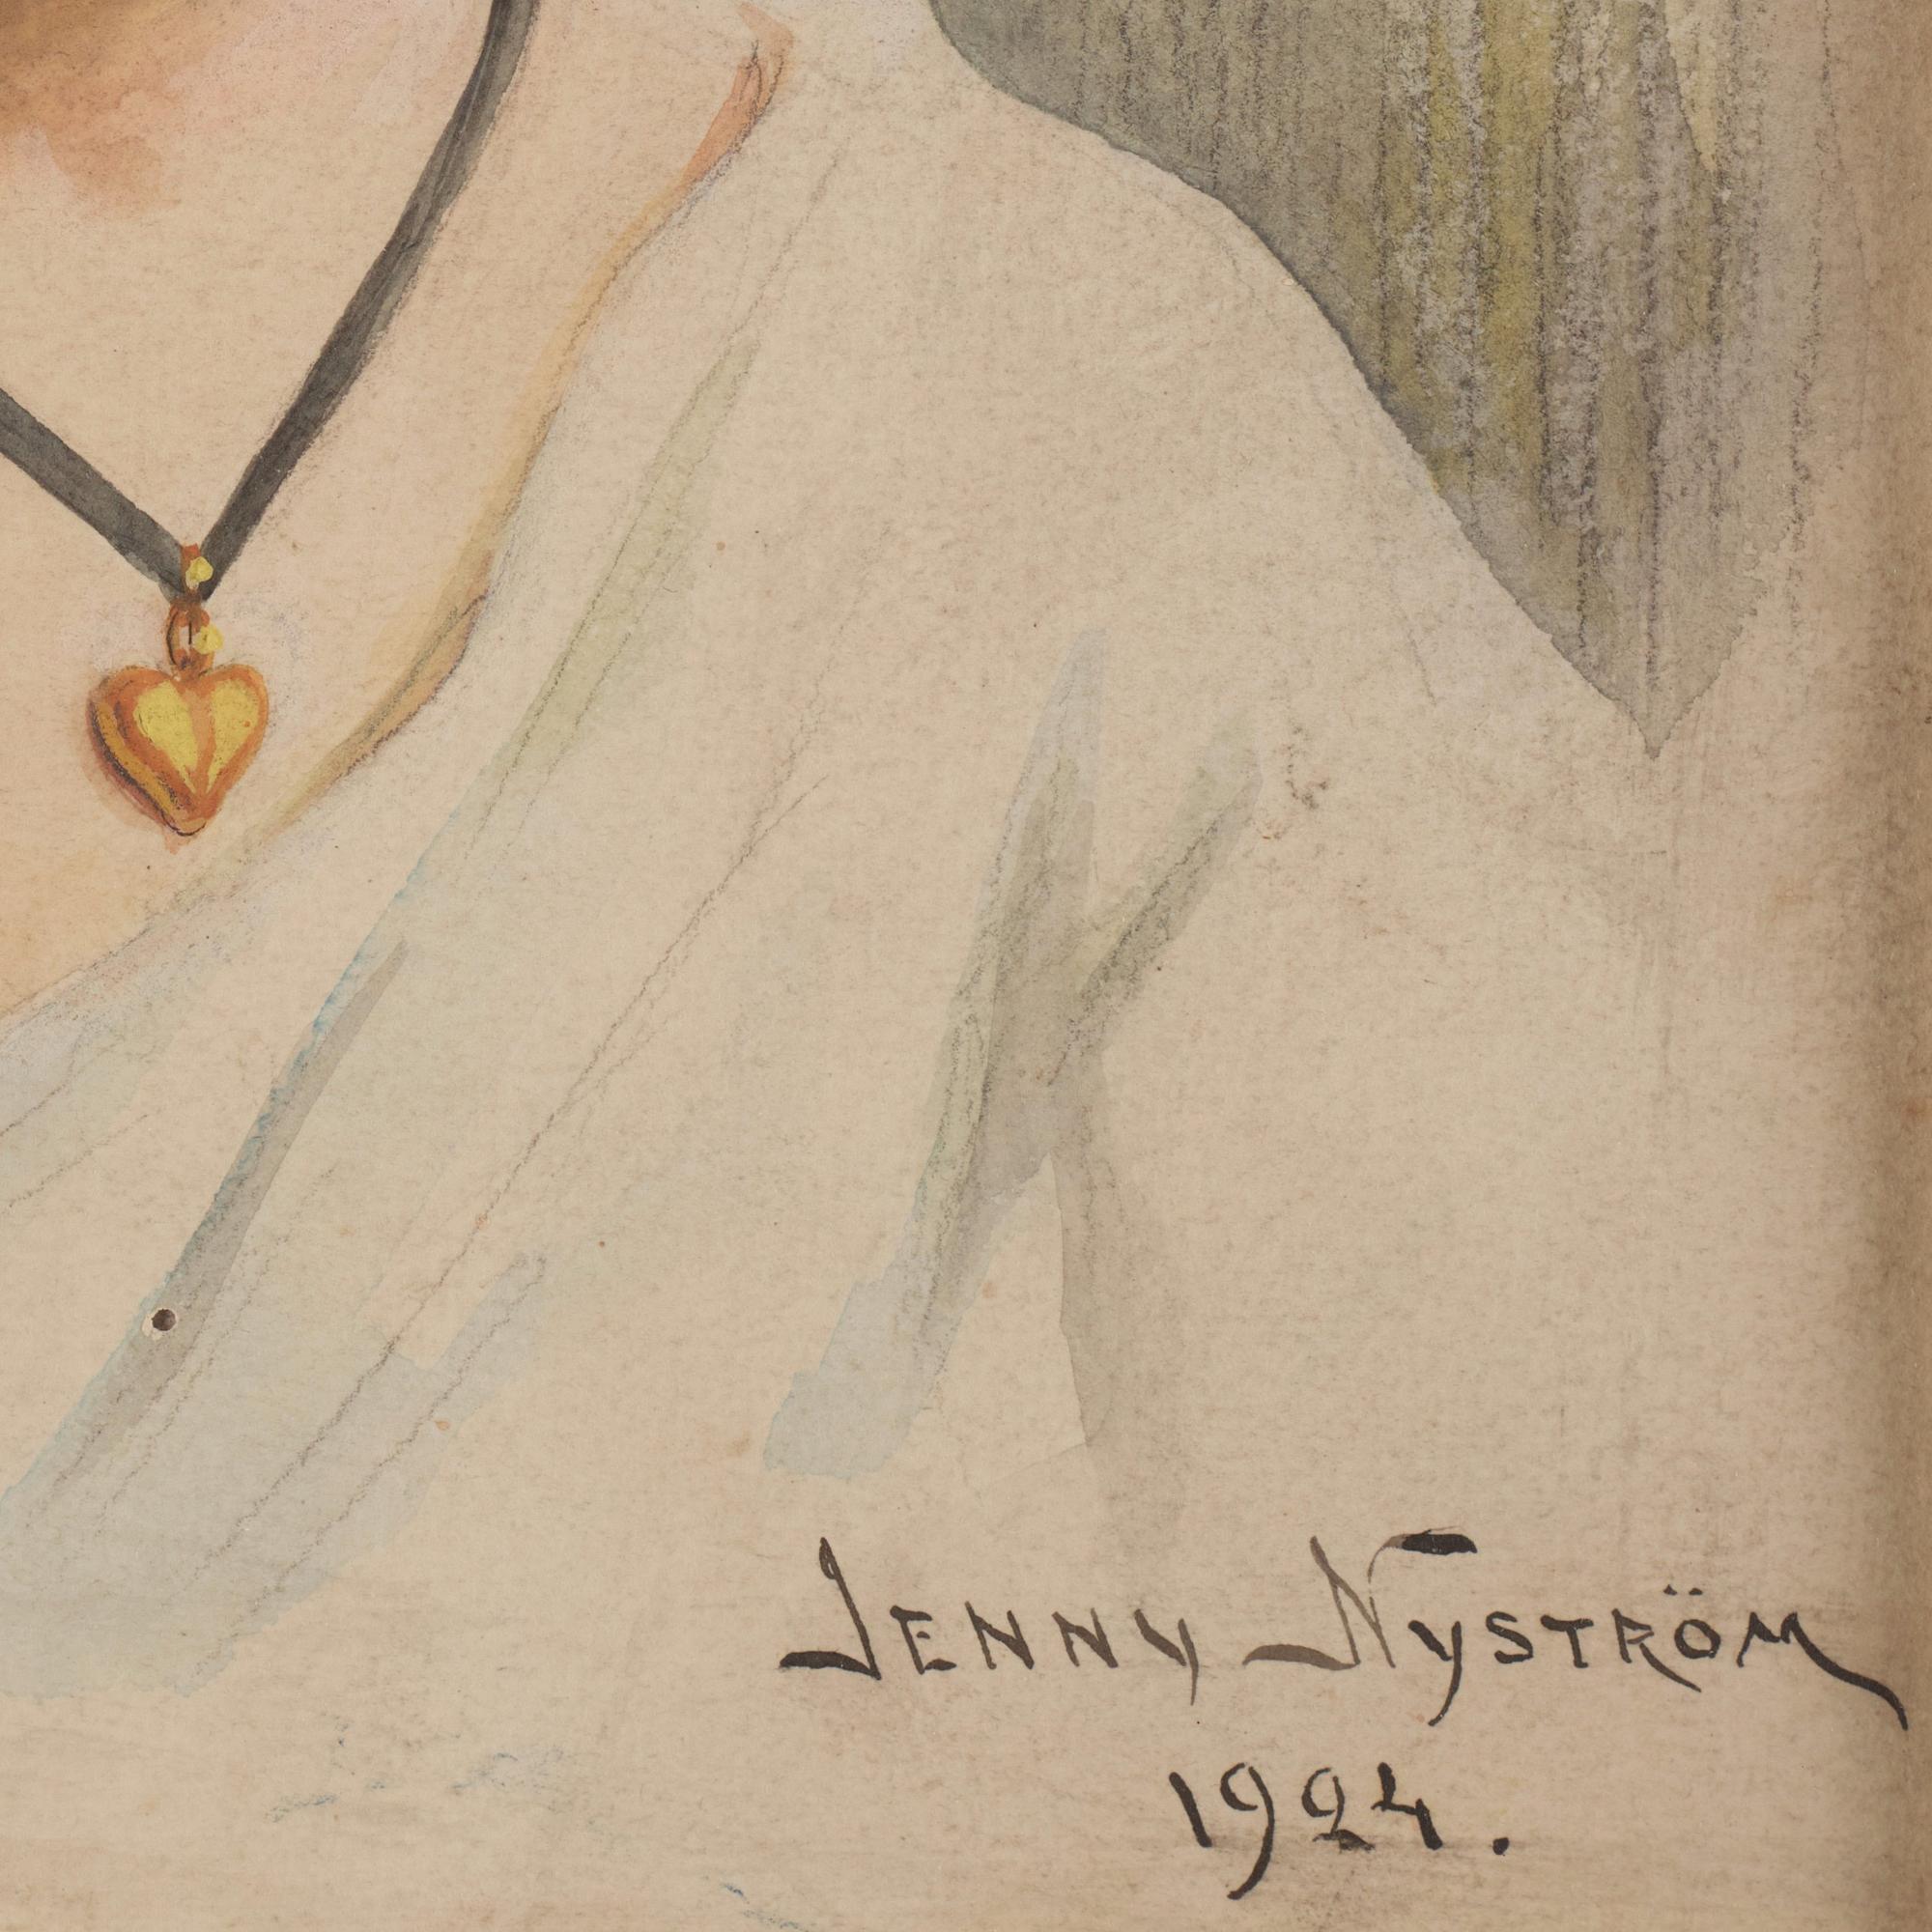 JENNY NYSTRÖM
1924.